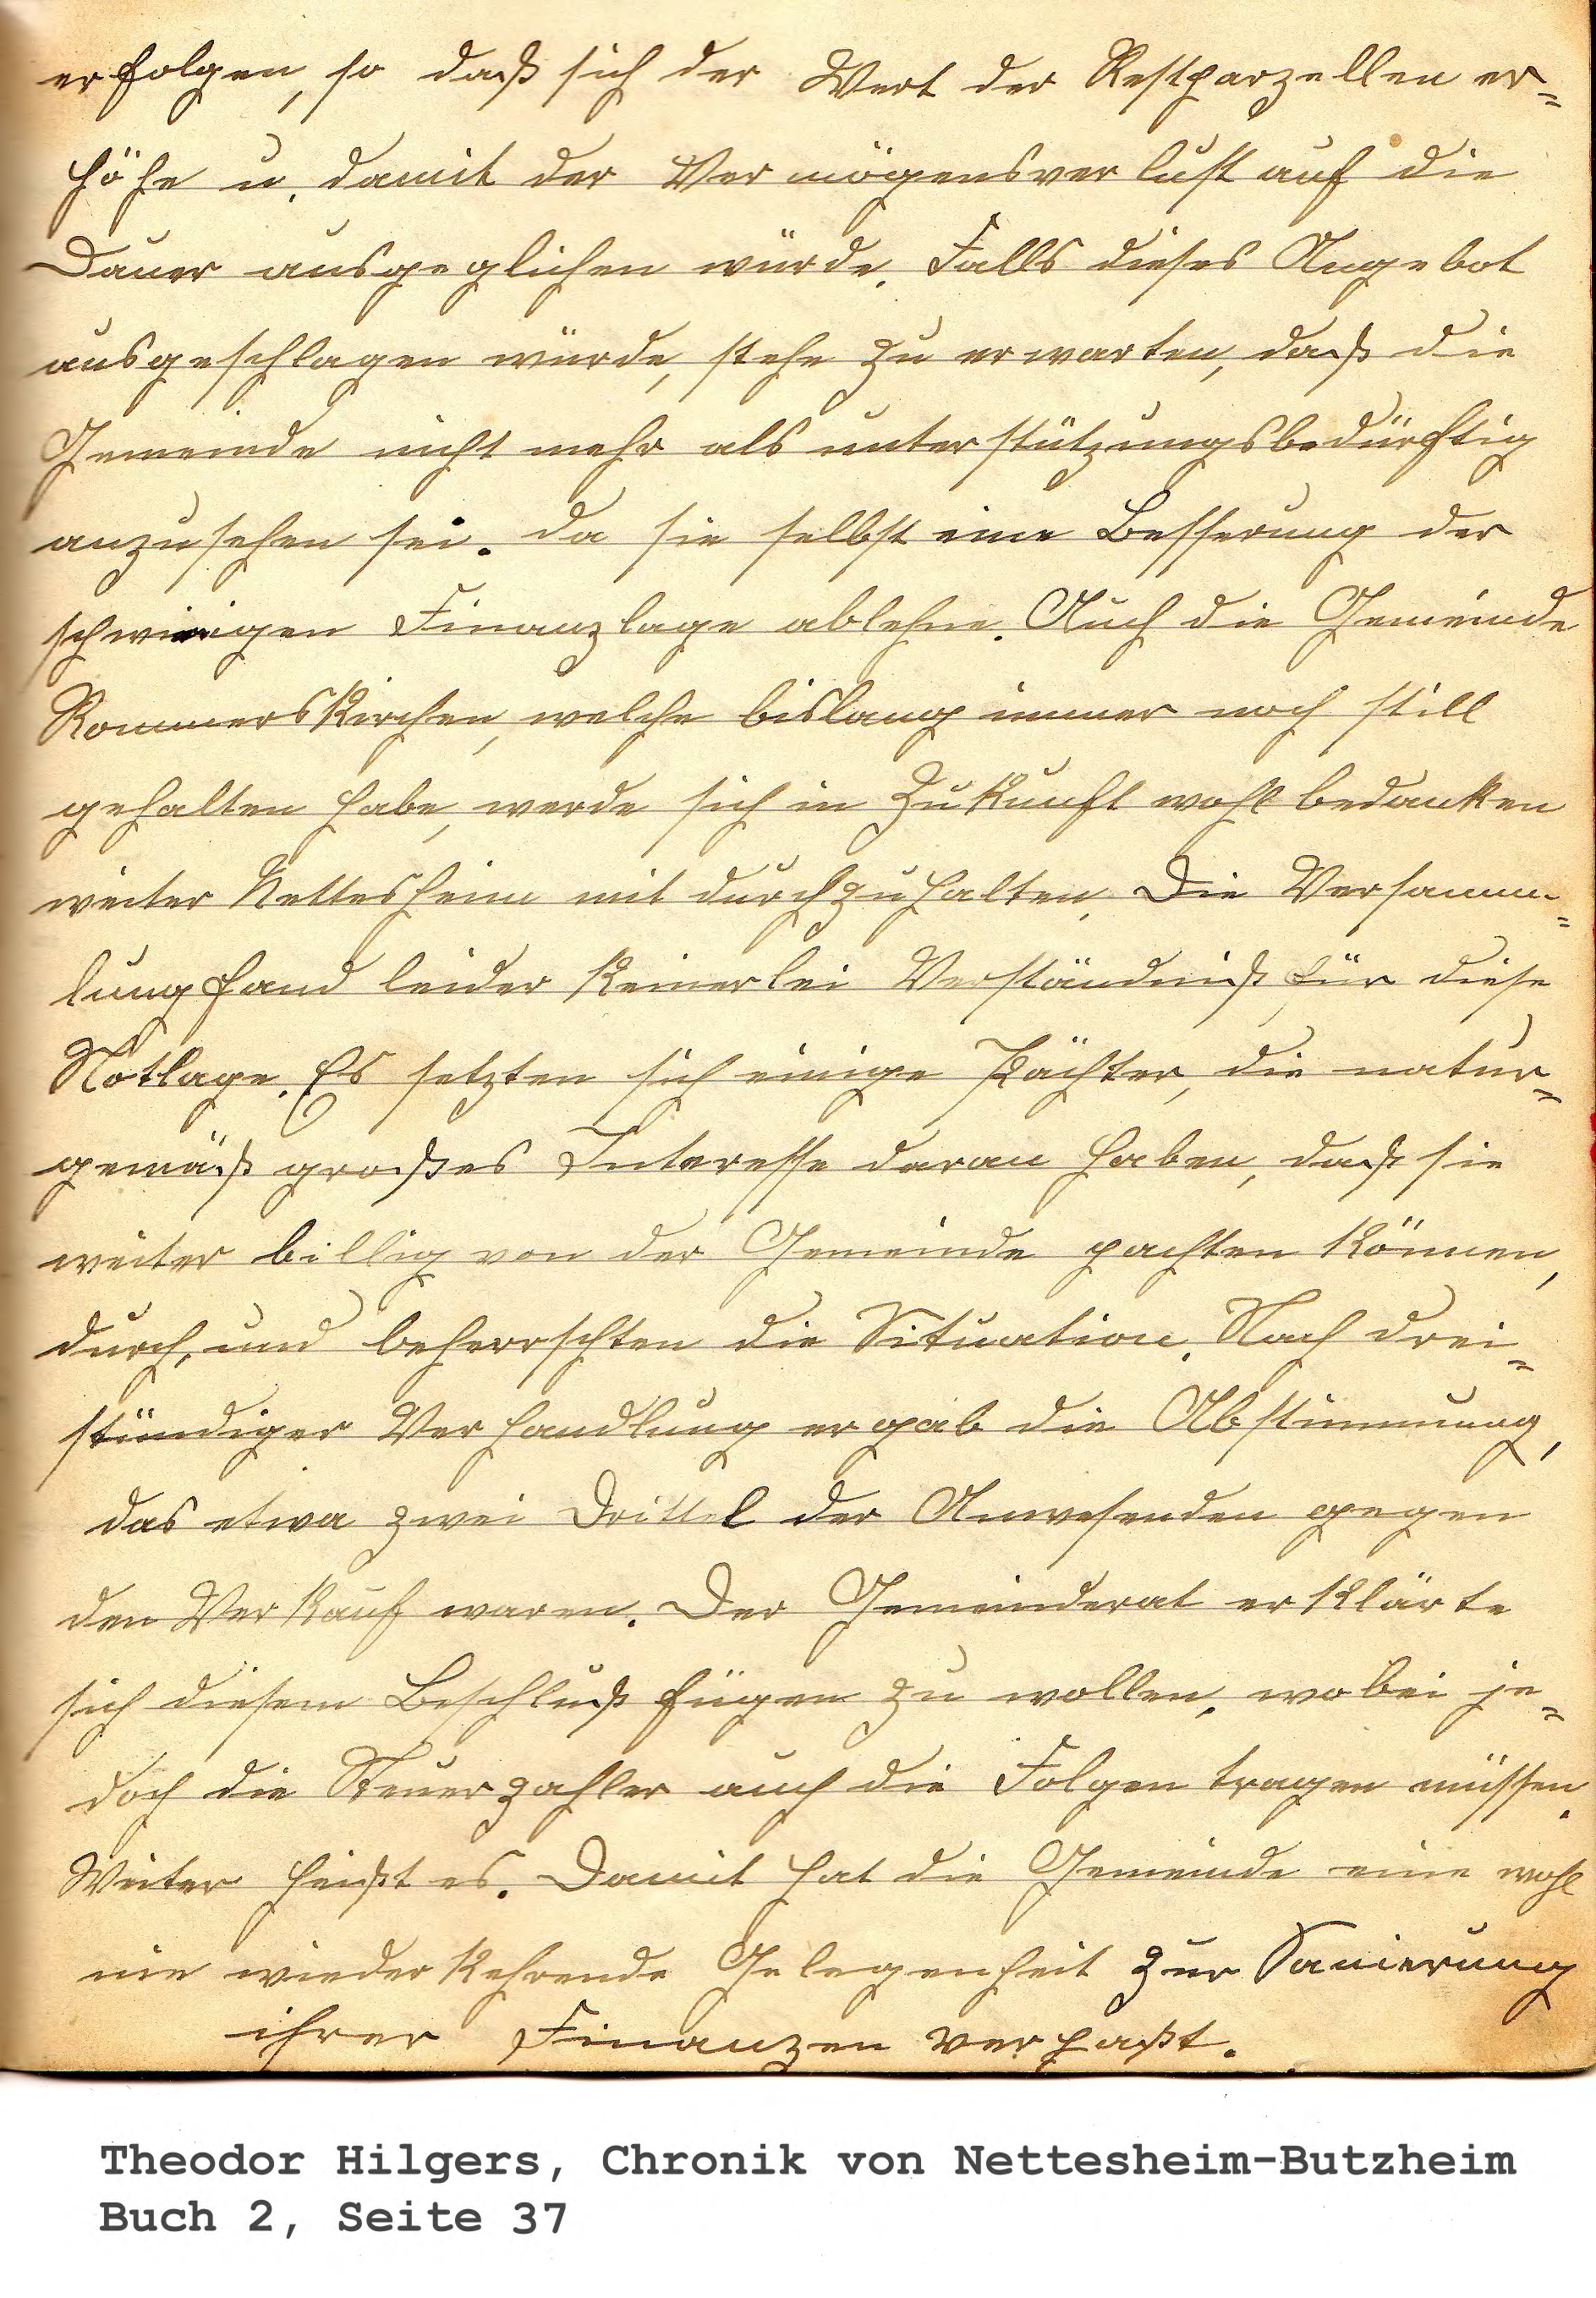 erfolgen, so daß sich der Wert der Restparzellen er=
höhe u. damit der Vermögensverlust auf die
Dauer ausgeglichen würde. Falls dieses Angebot
ausgeschlagen würde, stehe zu erwarten, daß die
Gemeinde nicht mehr als unterstützungsbedürftig
anzusehen sei. da sie selbst eine Besserung der
schwierigen Finanzlage ablehne. Auch die Gemeinde
Rommerskirchen, welche bislang immer noch still
gehalten habe, werde sich in Zukunft wohl bedanken
weiter Nettesheim mit durchzuhalten. Die Versamm=
lung fand leider keinerlei Verständniß für diese
Notlage. Es setzten sich einige Pächter, die natur=
gemäß großes Interesse daran haben, daß sie
weiter billig von der Gemeinde pachten können,
durch, und beherrschten die Situation. Nach drei=
stündiger Verhandlung ergab die Abstimmung,
das etwa zwei Drittel der Anwesenden gegen
den Verkauf waren. Der Gemeinderat erklärte
sich diesem Beschluß fügen zu wollen, wobei je=
doch die Steuerzahler auch die Folgen tragen müssen.
Weiter heißt es. Damit hat die Gemeinde eine wohl
nie wiederkehrende Gelegenheit zur Sanierung
ihrer Finanzen verpaßt.
Theodor Hilgers, Chronik von Nettesheim-Butzheim
Buch 2, Seite 37